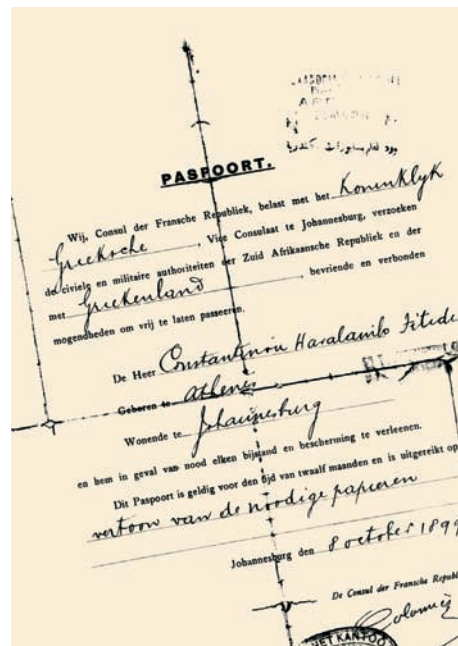 PASPOORT.
Wij, Consul der Fransche Republiek, belast met het Koninklyk
Grieksche, Vice Consulaat te Johannesburg, verzoeken
de civiele en militaire authoriteiten der Zuid Afrikaansche Republiek en der
met Griekenland, bevriende en verbonden
mogendheden om vrij te laten passeeren.
De Heer Constantinou Haralambo
Geboren te Athenes
Wonende te Johannesburg
en hem in geval van nood elken bijstand en bescherming te verleenen.
Dit Paspoort is geldig voor den tijd van twaalf maanden en is uitgereikt op
vertoon van de noodige papieren
Johannesburg den 8 october 1899
De Consul der Fransche Republ
Colomiès
HET KANTOO